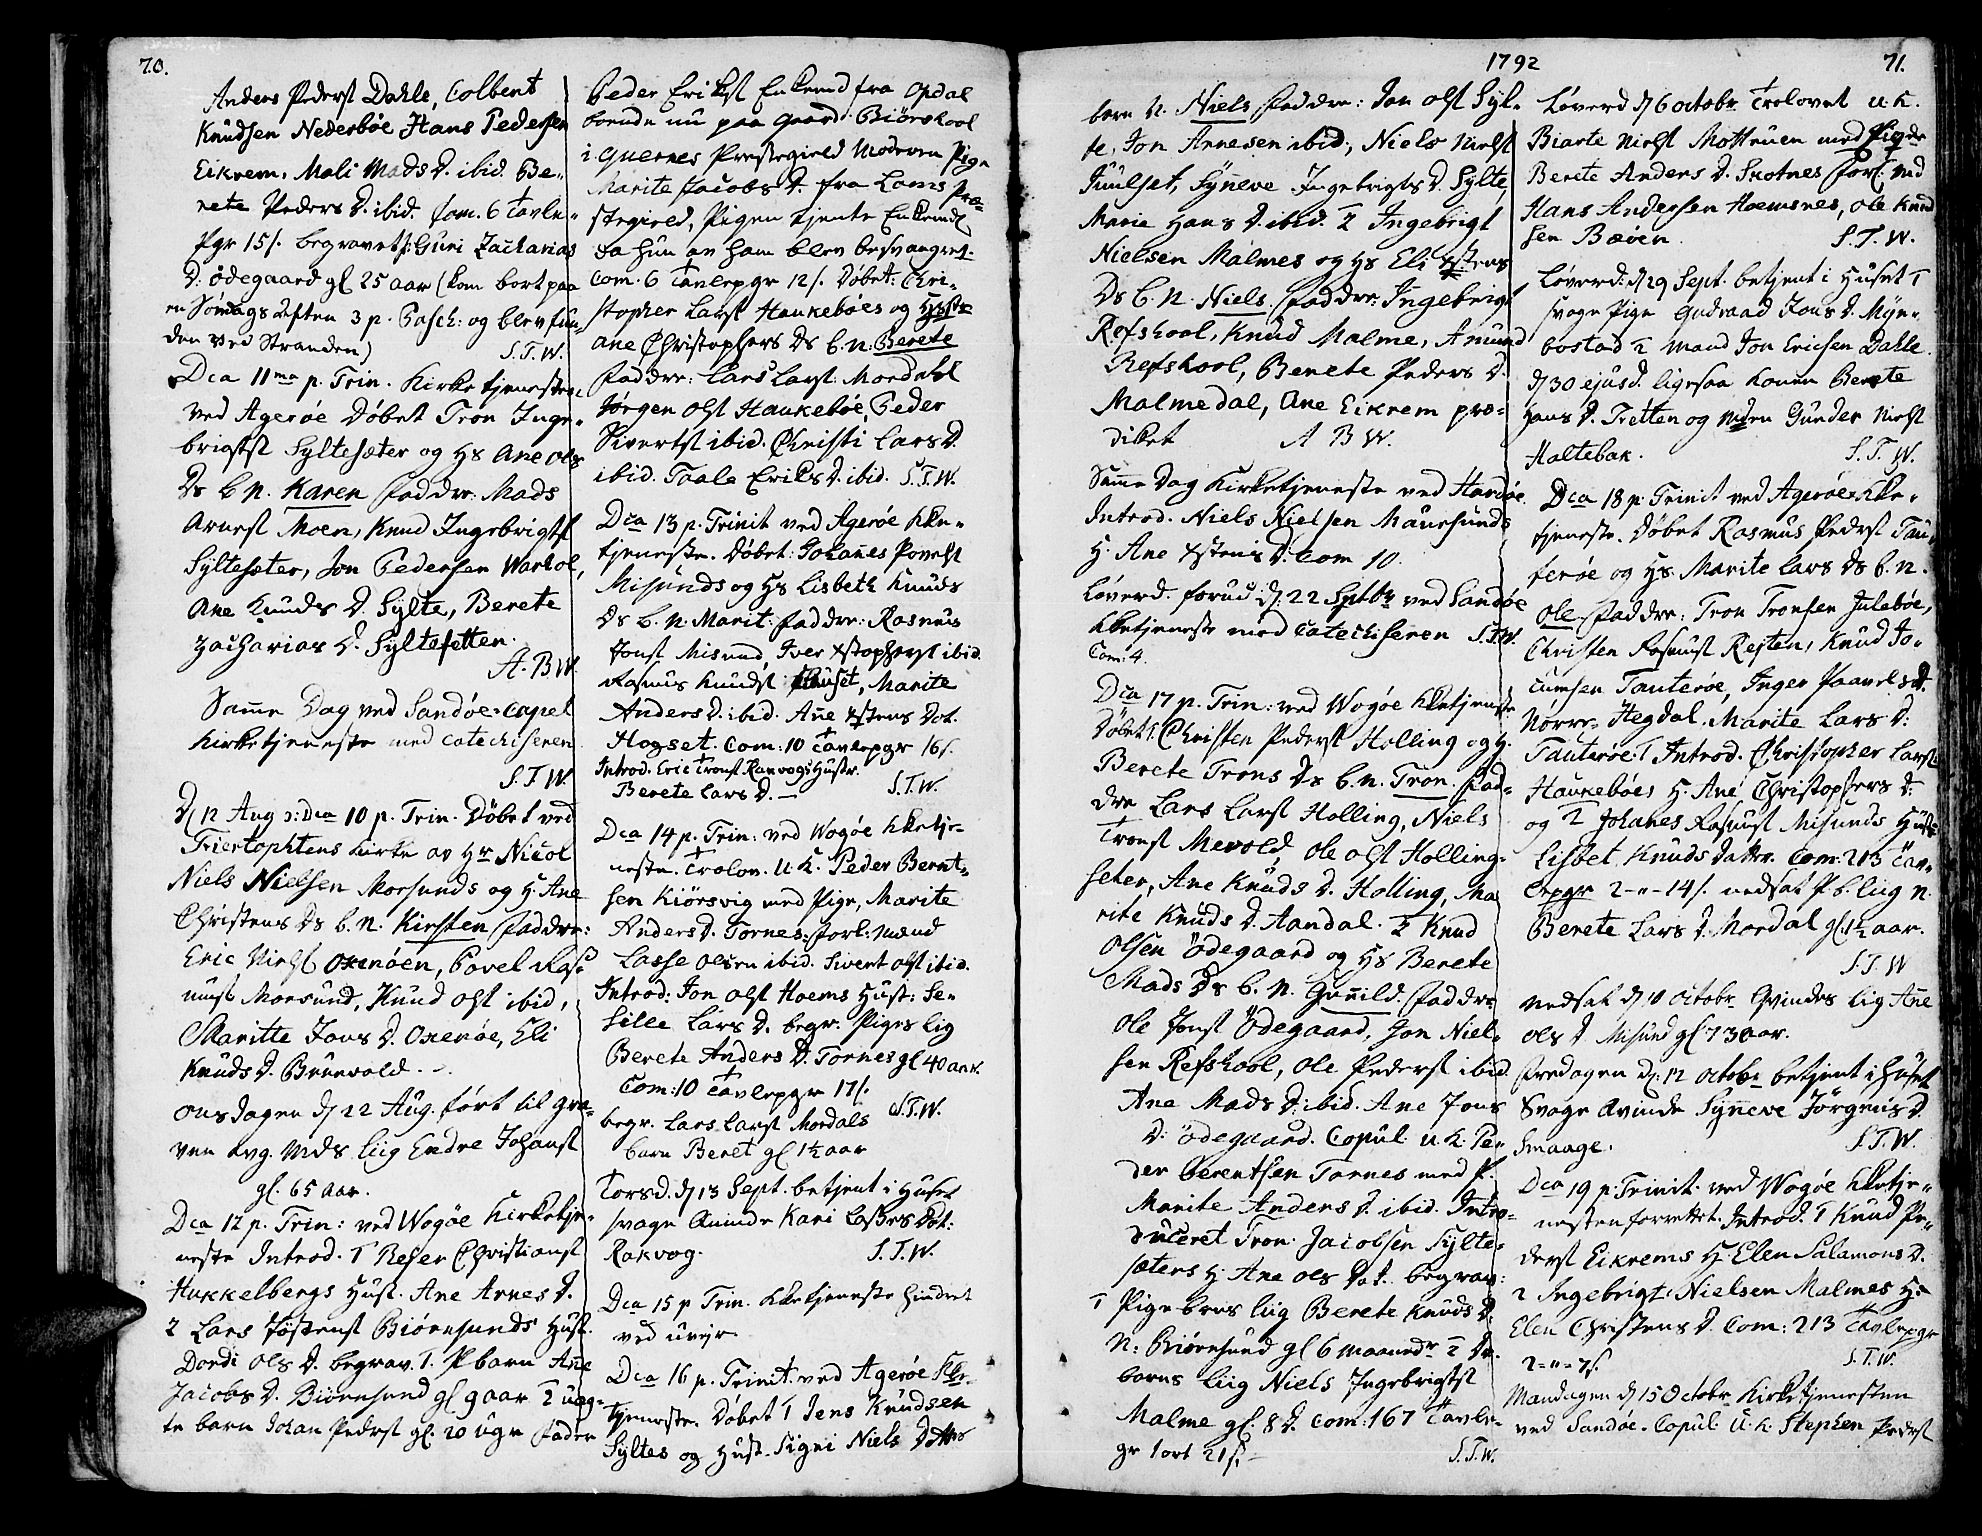 70.
Anders Pederst Dahle, Colbent
Knudsen Nederbøe Hans Pedersen
Eikrem, Mali Mads D. ibid. Be-
rete Peders D. ibid. Com. 6 Tavle-
Pgr 15/. begravet: Guri Zacharias
D. Ødegaard gl 25 aar (kom bort paa
en Søndags Aften 3 p. Pasch: og blev fun-
den ved Stranden) S.T.W.
Dca 11ma p. Trin. Kirketjenesten
ved Agerøe Døbet Tron Inge-
brigtst Syltesæter og Hs Ane Ols
Ds b. N. Karen Faddre: Mads
Arnest Moen, Knud Ingebrigtst
Syltesæter, Jon Pedersen Warhol,
Ane Knuds D. Sylte, Berete
Zacharias D. Syltesetten.
A. B W.
Samme Dag ved Sandøe-Capel
Kirketjeneste med Catechiseren
S.T.W.
D 12 Aug: Dca 10 p. Trin. Døbet ved
Kirke av Hr Nicol
Niels Nielsen Morsunds og H. Ane
Christens Ds b. N. Kirsten Faddre:
Eric Nielst Oxenøen, Povel Ras-
must Morsund, Knud Olst ibid,
Maritte Jons D. Oxenøe, Eli
Knuds D. Brunvold.
Onsdagen d 22 Aug. ført til Gra-
ven Mds liig Endre Johanst
gl. 65 aar.
Dca 12 p. Trin: ved Wogøe Kirketje-
neste Introd. 1 Christianst
Hukkelbergs Hust. Ane Arnes D.
2 Lars Jostenst Biørnsunds Hust.
Dordi Ols D. begrav. 1. P barn Ane
Jacobs D. Biørnsund gl 9 aar 2 uæg-
te barn Johan Pederst gl. 20 uger Fader
Peder Erikst Enkemd fra Opdal
boende nu paa Gaard Biørskool
i Quernes Prestegield Moderen Pige
Marite Jacobs D. fra Loms Præ-
stegield, Pigen tjente Enkemd
da hun av ham blev besvangret.
Com. 6 Tavlepgr 12/. Døbet: Chri-
stopher Larst Haukebøes og Hustr
Ane Christophers Ds b. n: Berete
Faddre: Lars Larst Mordahl
Jørgen Olst Haukebøe, Peder
Sivertst ibid. Christi Lars D.
ibid. Taale Eriks D. ibid. S.T.W.
Dca 13 p. Trinit ved Agerøe Kke-
tjeneste. Døbet: Johanes Povelst
Misunds og Hs Lisbeth Knuds
Ds b. N. Marit: Faddre: Rasmus
Jonst Misund, Iver Xstopherst ibid.
Rasmus Knudst Huset, Marite
Anders D. ibid. Ane Xstens Dot.
Hogset. Com: 10 Tavlepgr 16/.
Introd. Eric Tronst Ranvogs Hustr.
Berete Lars D. — S.T.W.
Dca 14 p. Trin: ved Wogøe Kketje-
neste. Trolov. U. K. Peder Bernt-
sen Kiørsvig med Pige, Marite
Anders D. Tornes: Forl: Mænd
Lasse Olsen ibid. Sivert Olst ibid.
Introd: Jon Olst Hoems Hust: Se-
sille Lars D. begr. Piges lig
Berete Anders D. Tornes gl 40 aar
Com: 10 Tavlepgr 17/.
S.T.W.
begr. Lars Larst Mordals
barn Beret gl 1½ aar
Torsd. d 13 Sept. betjent i Huset
svage Quinde Kari Lasses Dot:
Rakvog. S.T.W.
Dca 15 p Trin. Kketjeneste hindret
ved uvejr
Dca 16 p. Trinit. ved Agerøe Kke-
tjeneste. Døbet 1 Jens Knudsen
Syltes og Hust. Signi Niels Dattrs
1792
71.
barn N. Niels, Faddre: Jon Olst Syl-
te, Jon Arnesen ibid, Niels Nielst
Juulset, Syneve Ingebrigts D. Sylte,
Marie Hans D. ibid. 2 Ingebrigt
Nielsen Malmes og Hs Eli Xstens
Ds b. N. Niels. Faddre: Ingebrigt
Refskool, Knud Malme, Amund
Refskool, Berete Peders D.
Malmedal, Ane Eikrem præ-
diket A B W.
Same Dag Kirketjeneste ved Hardøe
Introd. Niels Nielsen Mausunds
H. Ane Xstens D. Com 10.
Løverd. forud d. 22 Septbr ved Sandøe
Kketjeneste med Catechiseren S.T.W.
Com: 4.
Dca 17 p. Trin: ved Wogøe Kketjeneste
Døbet 1. Christen Pederst Holling og H.
Berete Trons Ds b. N. Tron. Fad-
dre Lars Larst Holling, Niels
Tronst Mevold, Ole Olst Holling-
seter, Ane Knuds D. Holling, Ma
rite Knuds D. Aandal. 2 Knud
Olsen Ødegaard og Hs Berete
Mads Ds b. N. Gunild. Faddre
Ole Jonst Ødegaard, Jon Niel-
sen Refskool, Ole Pederst ibid
Ane Mads D. ibid. Ane Jons
D. Ødegaard. Copul: u. K: Pe-
der Berentsen Tornes med P.
Marite Anders D. ibid. Intro-
duceret Tron Jacobsen Sylte-
sæters H: Ane Ols Dat. begrav:
1 Pige bens liig Berete Knuds D.
N: Biørnsund gl 6 maander 2 Dr.
barns liig Niels Ingebrigtst
Malme gl. 8 D. Com: 167 Tavle-
gr 1 ort 21/.— S.T.W.
Løverd d 6 octobr Trolovet u. K.
Biarte Nielst Mottruen med Pigen
Berete Anders D. Skotnes Forl: Md
Hans Andersen Hoemsnes, Ole Knud
sen Bævsen. S.T.W.
Løverd: d 29 Sept. betjent i Huset 1
svage Pige Gudraad Jons D. Myr-
bostad 2 Mand Jon Ericsen Dahle.
d 30 ejusd. ligesaa Konen Berete
Hans D. Tretten og Mden Gunder Nielst
Haltebak. S.T.W.
Dca 18 p: Trinit ved Agerøe Kke-
tjeneste. Døbet Rasmus Pederst Tau-
terøe og Hs. Marite Lars Ds b. N.
Ole Faddre: Tron Tronsen Julebøe,
Christen Rasmust Resten, Knud Jo-
cumsen Tauterøe, Inger Paavels D.
Nørre-Hegdal. Marite Lars D:
Tauterøe. 1 Introd. Christopher Larst
Haukebøes H. Ane Christophers D:
og 2 Johanes Rasmust Misunds Hustr
Lisbet Knuds Datter. Com: 213 Tav-
lepgr 2-"-14/. nedsat P.b. liig N.
Berete Lars D. Mordal gl 1½ aar.
S.T.W
nedsat d 10 octobr Qvindes lig Ane
Ols D. Misund gl 73 aar.
Fredagen d. 12 octobr betjent i Huset
Svage Qvinde Syneve Jørgens D.
Smaage. S.T.W.
Dca 19 p. Trinit. ved Wogøe Kketje-
nesten forrettet. Introd. 1 Knud Pe-
derst Eikrems H. Elen Salamons D.
2 Ingebrigt Nielsen Malmes H
Elen Christens D. Com: 213 Tavlepgr
2-"-7/. S.T.W.
Mandagen d 15 Octobr Kirketjenesten
ved Sandøe. Copul: U. K. Stephen Pederst